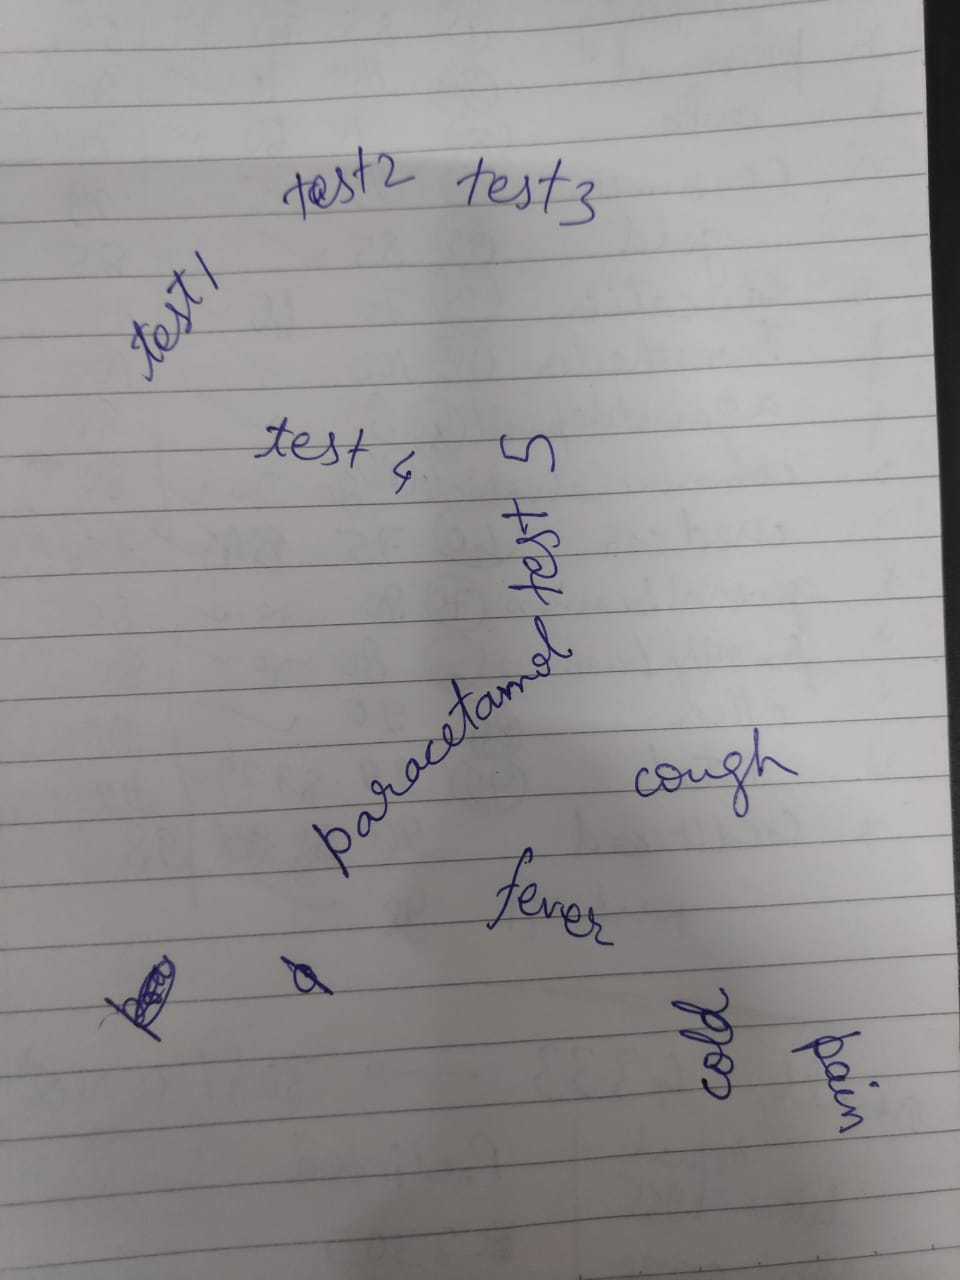 test2 test3
test1
test 4
test 5
paracetamol
cough
fever
cold
pain